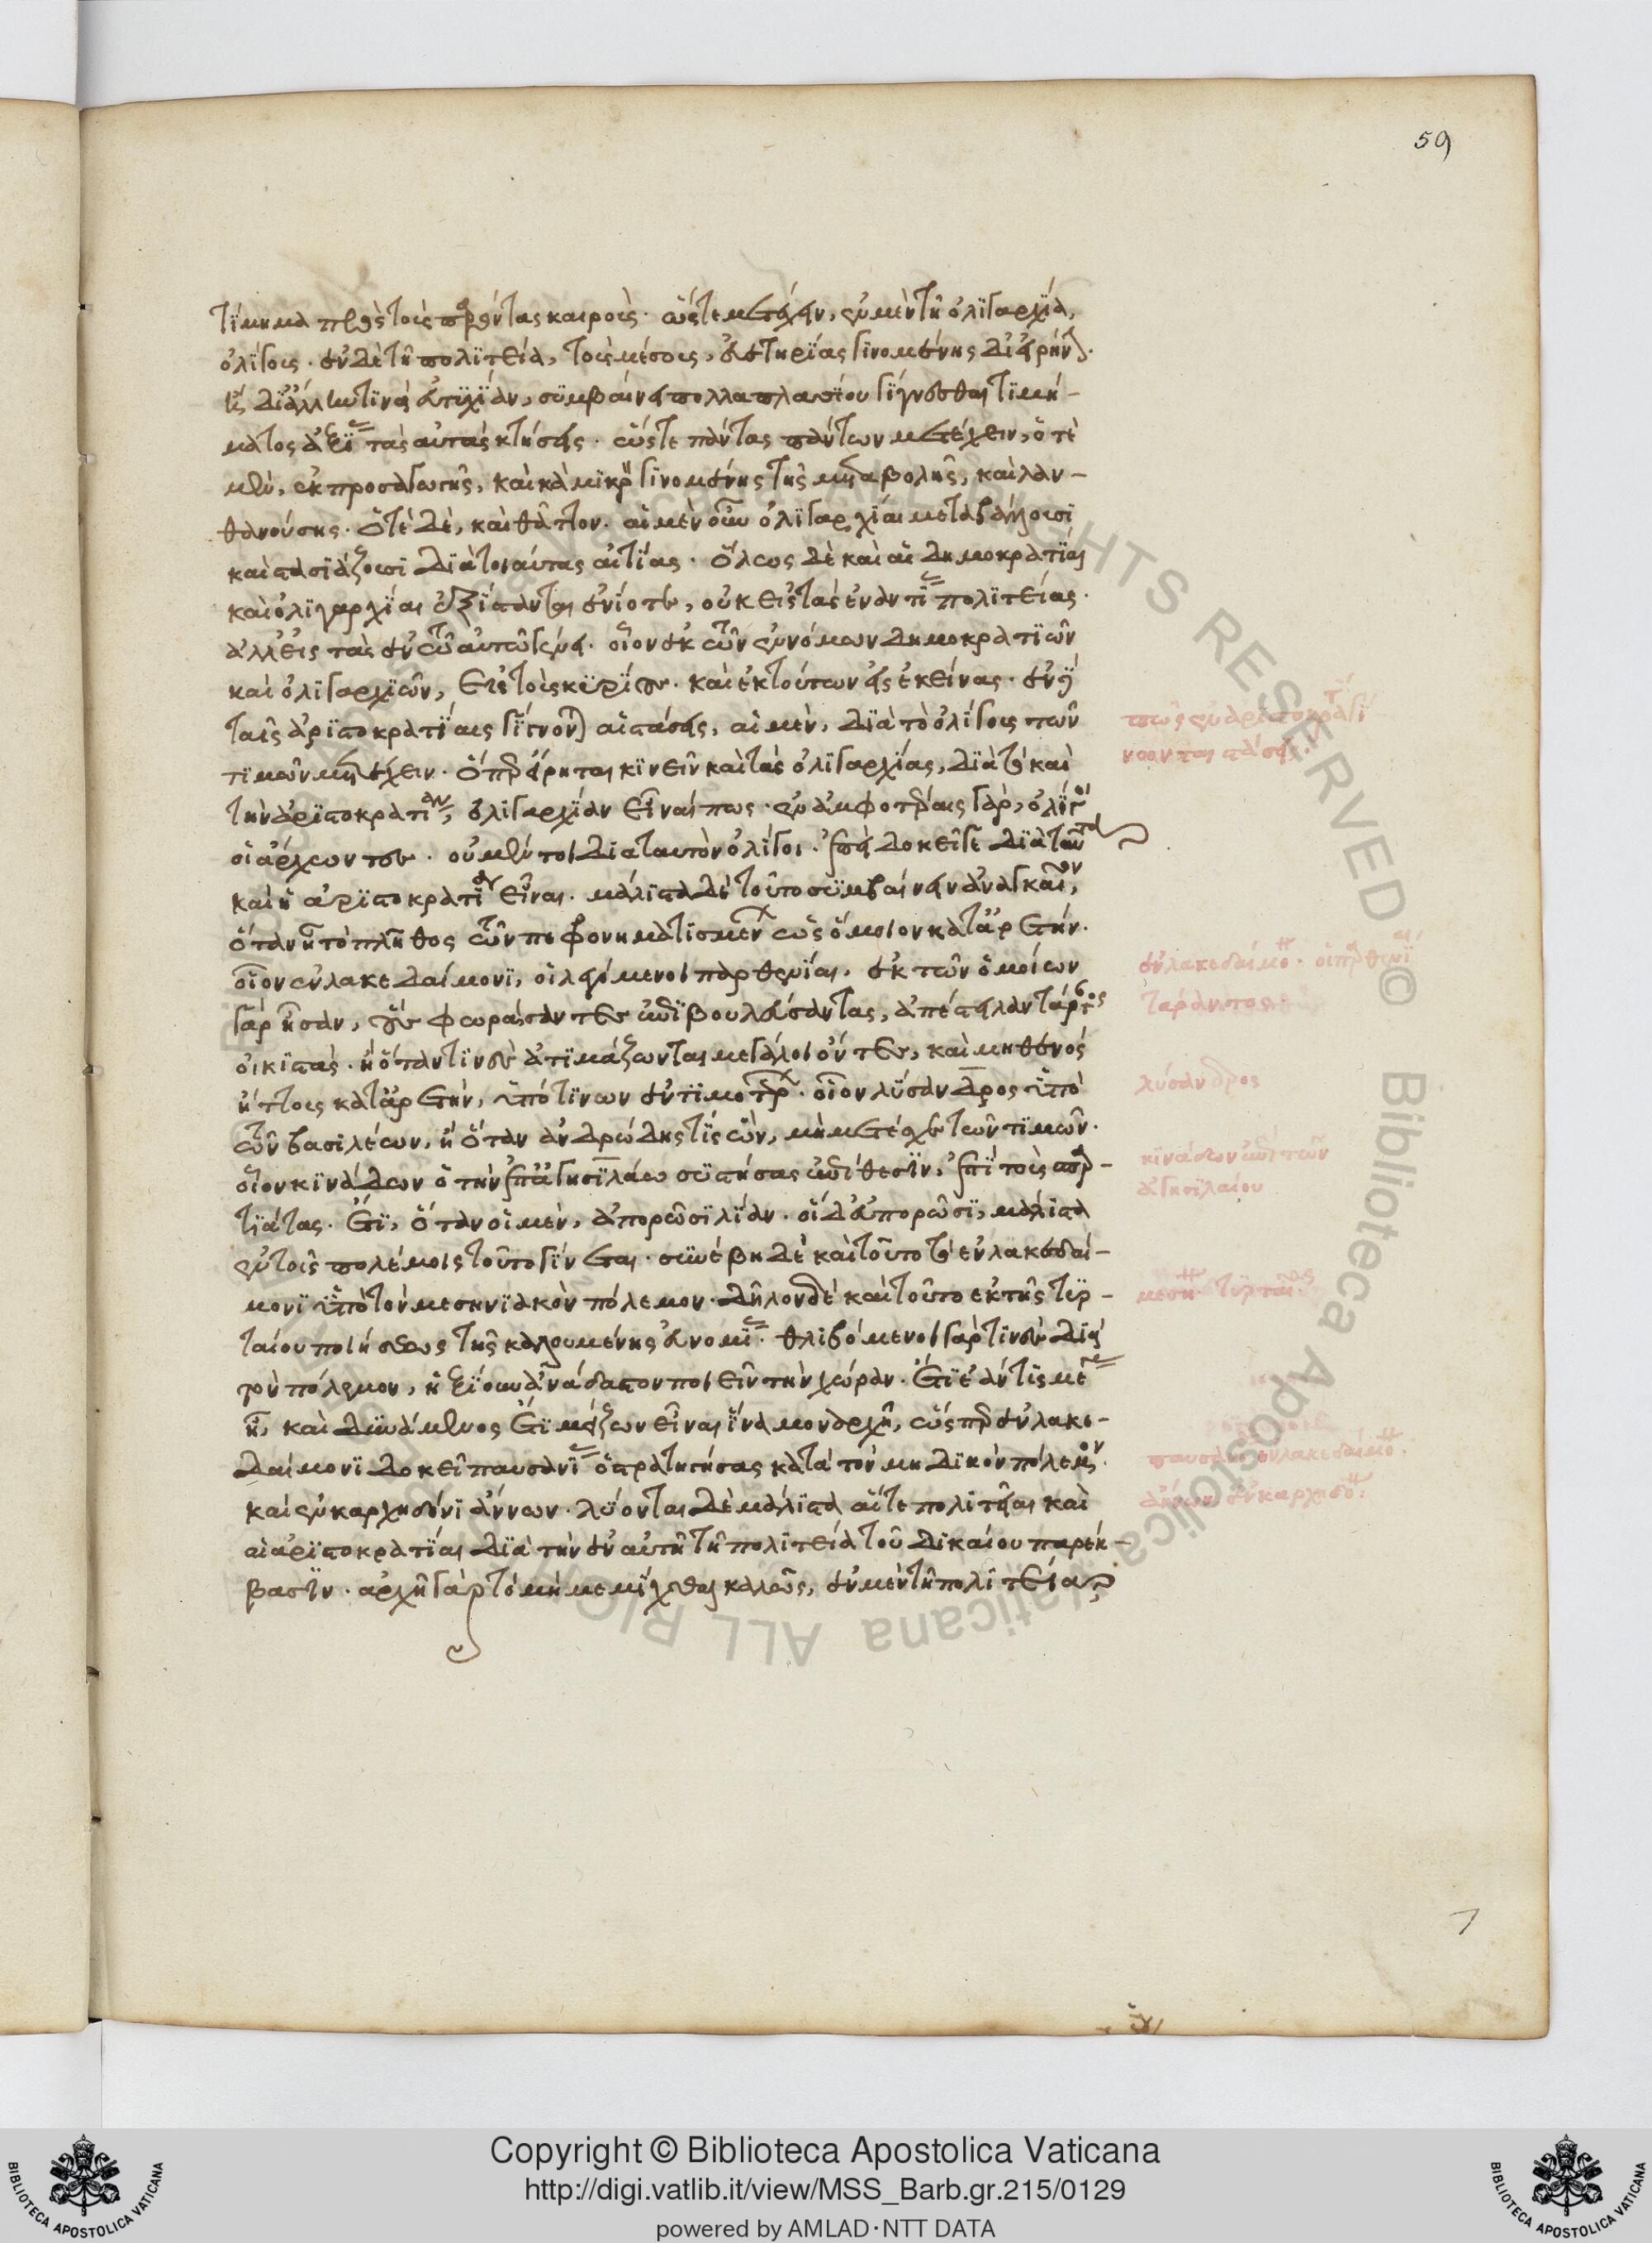 59
τίμημα πρὸς τοὺς παρόντας καιροὺς· ὥστε μετέχειν, ἐν μὲν τῆ ὀλιγαρχία,
ὀλίγους· ἐν δὲ τῆ πολιτεία, τοὺς μέσους, εὐετηρίας γινομένης δι' εἰρήνην·
ἢ δι' ἄλλην τινὰ εὐτυχίαν, συμβαίνει πολλαπλασίου γίγνεσθαι τιμή-
ματος ἀξίας τὰς αὐτὰς κτήσεις· ὥστε πάντας πάντων μετέχειν, ὁτὲ
μὲν, ἐκ προσαγωγῆς, καὶ κατὰ μικρὸν γινομένης τῆς μεταβολῆς, καὶ λαν-
θανούσης· ὁτὲ δὲ, καὶ θᾶττον. αἱ μὲν οὖν ὀλιγαρχίαι μεταβάλλουσι
καὶ στασιάζουσι διὰ τοιαύτας αἰτίας· ὅλως δὲ καὶ αἱ δημοκρατίαι
καὶ ὀλιγαρχίαι ἐξίστανται ἐνίοτε, οὐκ εἰς τὰς ἐναντίας πολιτείας·
ἀλλ' εἰς τὰς ἐν τῶ αὐτῶ γένει· οἷον ἐκ τῶν ἐννόμων δημοκρατιῶν
καὶ ὀλιγαρχιῶν, εἰς τοὺς κυρίους· καὶ ἐκ τούτων εἰς ἐκείνας· ἐν δὲ
ταῖς ἀριστοκρατίαις γίγνονται αἱ στάσεις, αἱ μὲν, διὰ τὸ ὀλίγους τῶν
τιμῶν μετέχειν· ὅπερ εἴρηται κινεῖν καὶ τὰς ὀλιγαρχίας, διὰ τὸ καὶ
τὴν ἀριστοκρατίαν, ὀλιγαρχίαν εἶναί πως· ἐν ἀμφοτέραις γὰρ, ὀλίγοι
οἱ ἄρχοντες· οὐ μέντοι διὰ ταυτὸν ὀλίγοι· ἐπεὶ δοκεῖ γε διὰ ταῦτα
καὶ ἡ ἀριστοκρατία ὀλιγαρχία εἶναι· μάλιστα δὲ τοῦτο συμβαίνειν ἀναγκαῖον,
ὅταν ἦ τὸ πλῆθος τῶν πεφρονηματισμένων ὡς ὅμοιον κατ' ἀρετήν·
οἷον ἐν λακεδαίμονι, οἱ λεγόμενοι παρθενίαι· ἐκ τῶν ὁμοίων
γὰρ ἦσαν, οὓς φωράσαντες ἐπιβουλεύσαντας, ἀπέστειλαν τάραντος
οἰκιστάς· ἢ ὅταν τινὲς ἀτιμάζωνται μεγάλοι ὄντες, καὶ μηθενὸς
ἥττους κατ' ἀρετήν, ὑπό τινων ἐντιμοτέρων· οἷον λύσανδρος ὑπὸ
τῶν βασιλέων, ἢ ὅταν ἀνδρώδης τὶς ὢν, μὴ μετέχη τῶν τιμῶν·
οἷον κινάδων ὁ τὴν ἐπ' ἀγησιλάω συστήσας ἐπίθεσιν, ἐπὶ τοὺς σπαρ-
τιάτας· ἔτι, ὅταν οἱ μὲν, ἀπορῶσι λίαν· οἱ δ' εὐπορῶσι, μάλιστα
ἐν τοῖς πολέμοις τοῦτο γίνεται· συνέβη δὲ καὶ τοῦτο τὸ ἐν λακεδαί-
μονι ὑπὸ τὸν μεσηνιακὸν πόλεμον· δῆλον δὲ καὶ τοῦτο ἐκ τῆς τυρ-
ταίου ποιήσεως τῆς καλουμένης εὐνομίας· θλιβόμενοι γάρ τινες διὰ
τὸν πόλεμον, ἠξίουν ἀνάδαστον ποιεῖν τὴν χώραν· ἔτι ἐάν τις μέγας
ἦ, καὶ δυνάμενος ἔτι μείζων εἶναι ἵνα μοναρχῆ, ὥσπερ ἐν λακε-
δαίμονι δοκεῖ παυσανίας ὁ στρατηγήσας κατὰ τὸν μηδικὸν πόλεμον·
καὶ ἐν καρχηδόνι ἄννων· λύονται δὲ μάλιστα αἵ τε πολιτεῖαι καὶ
αἱ ἀριστοκρατίαι διὰ τὴν ἐν αὐτῆ τῆ πολιτεία τοῦ δικαίου παρέκ-
βασιν· ἀρχὴ γὰρ τὸ μὴ μεμίχθαι καλῶς, ἐν μὲν τῆ πολιτεία
λύσανδρος
κινάδων ἐπὶ τῶν
ἀγησιλαίου